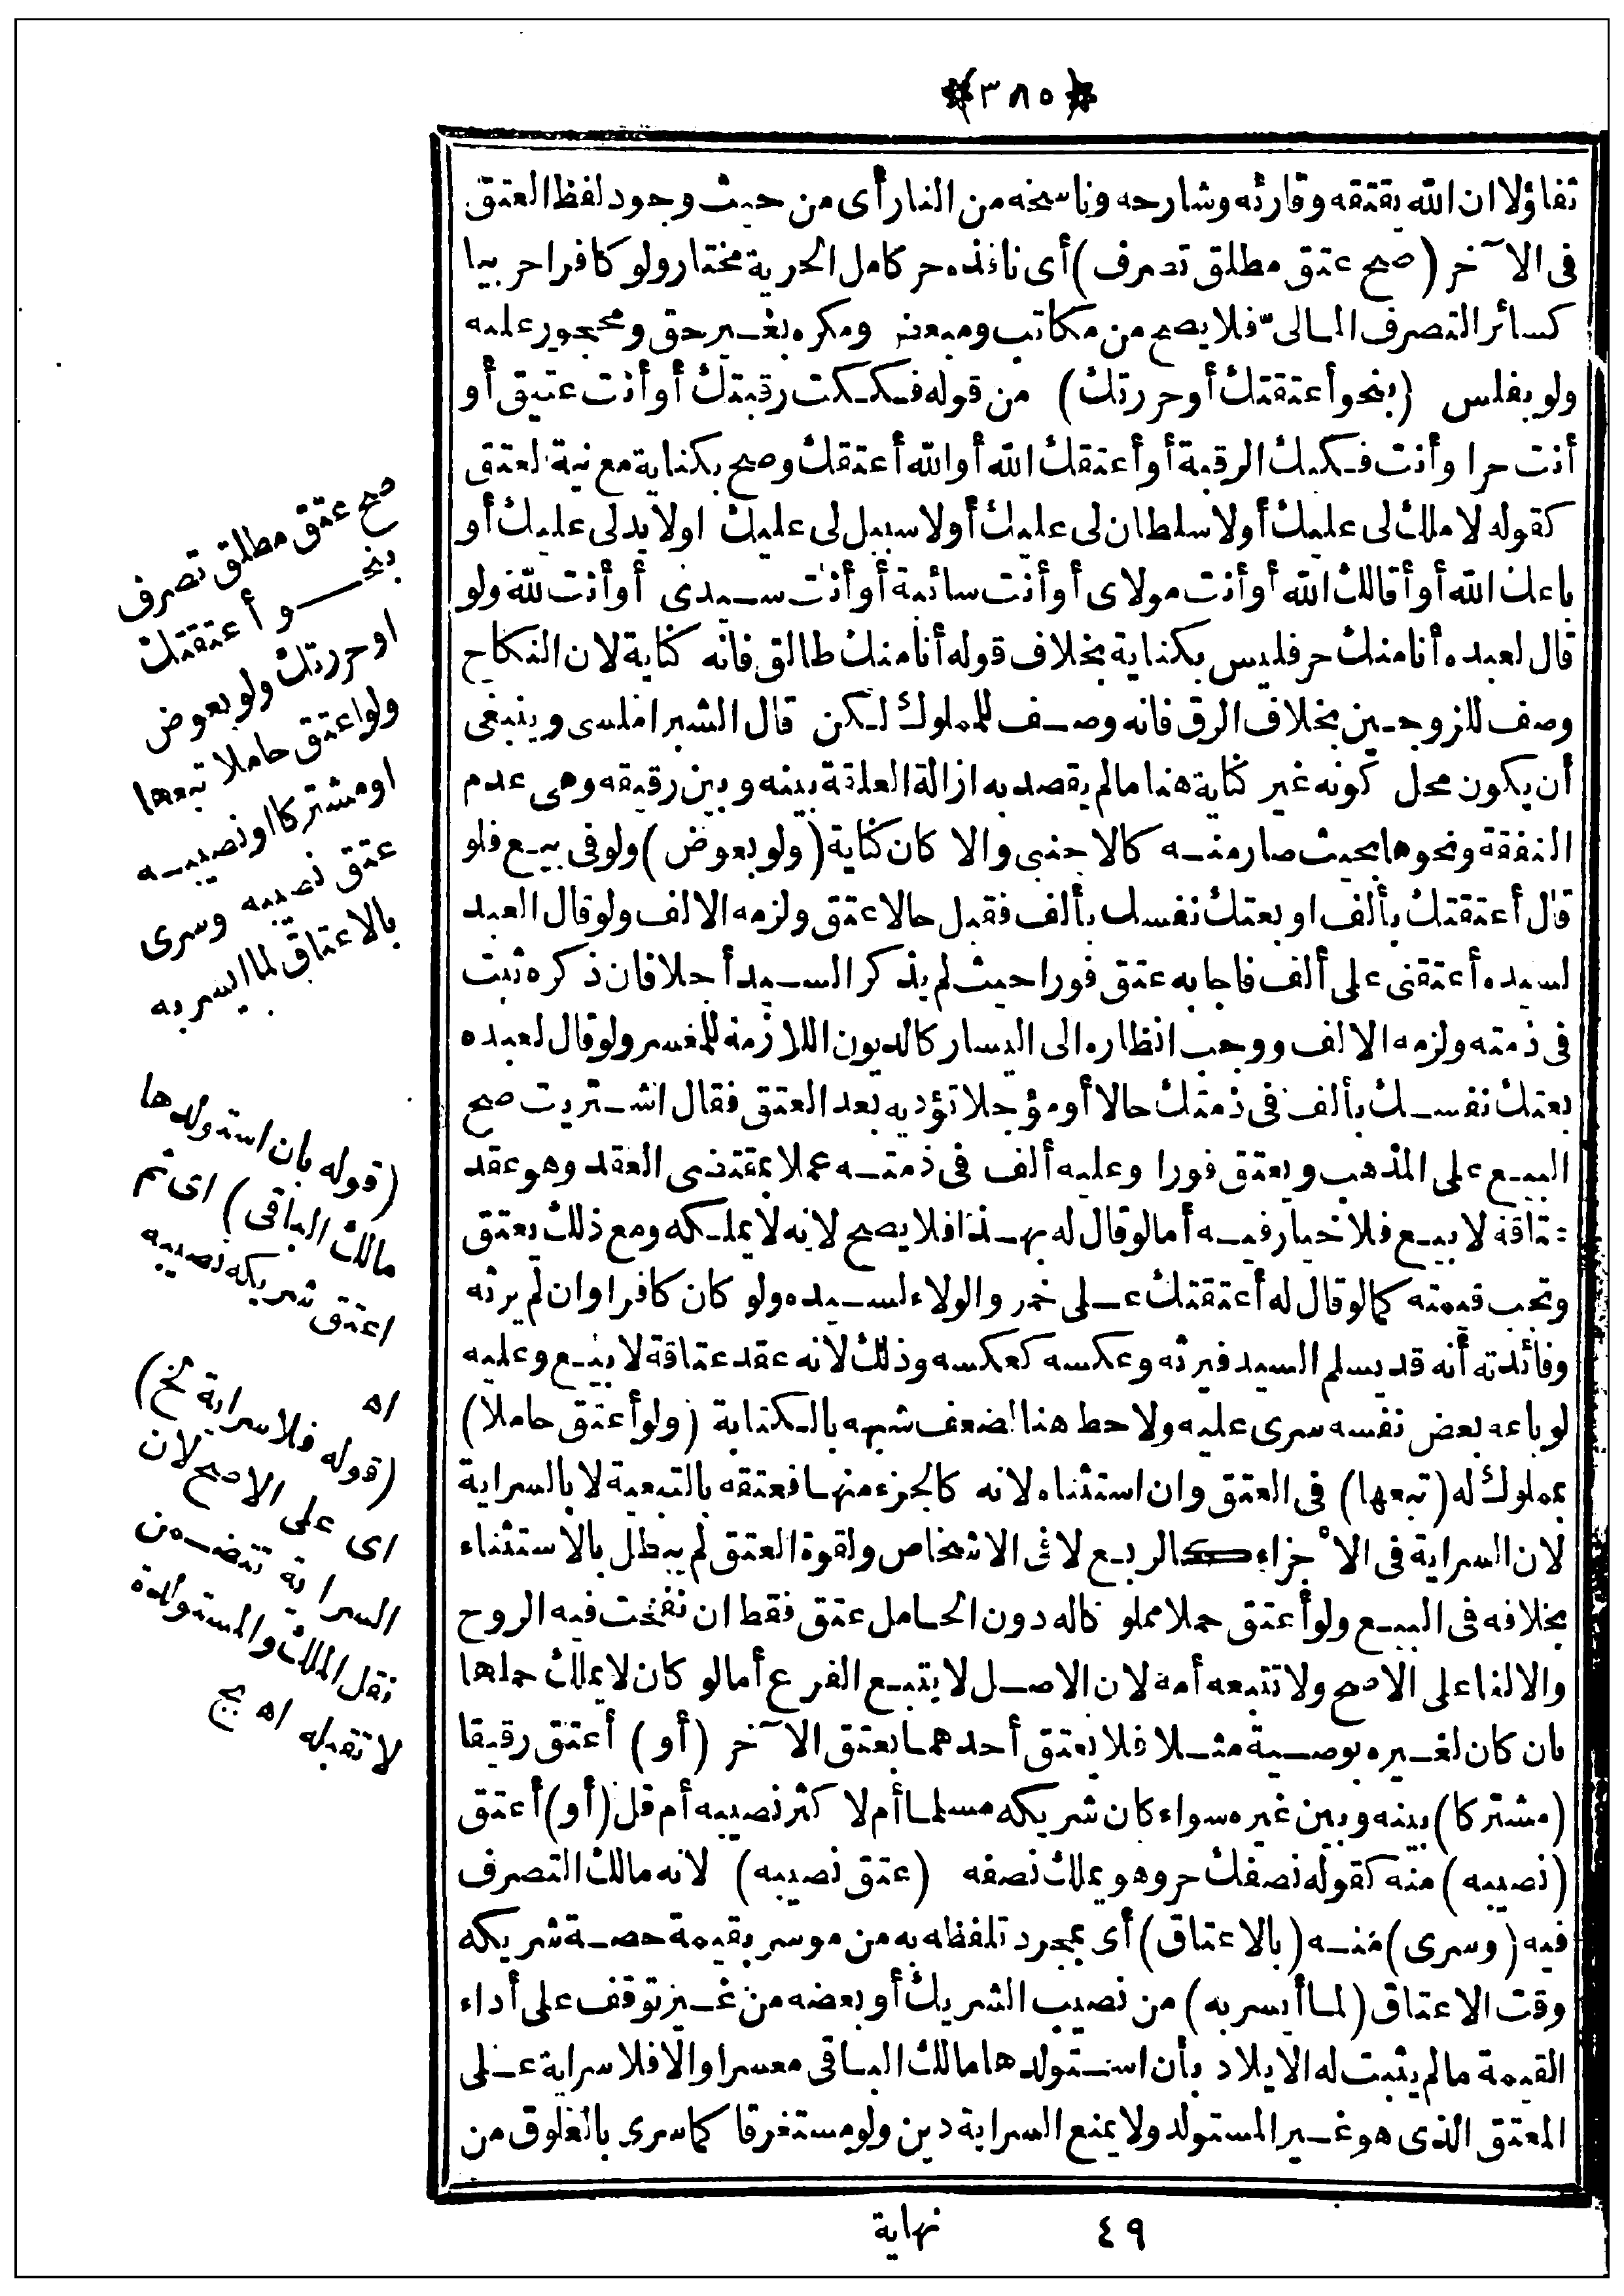 ﴿٣٨٥﴾
تفاؤلا ان الله يعتقه وقارئه وشارحه وناسخه من النار أى من حيث وجود لفظ العتق
فى الآخر (صح عتق مطلق تصرف) أى نافذه حر كامل الحرية مختار ولو كافرا حربيا
كسائر التصرف المالى فلا يصح من مكاتب ومبعض ومكره بغير حق ومحجور عليه
ولو بفلس (بنحو أعتقتك أو حررتك) من قوله فككت رقبتك أو أنت عتيق أو
أنت حر او أنت فكيك الرقبة أو أعتقك الله أو الله أعتقك وصح بكناية مع نية لعتق
كقوله لا ملك لى عليك أو لا سلطان لى عليك أو لا سبيل لى عليك او لا يد لى عليك أو
باعك الله أو أقالك الله أو أنت مولاى أو أنت سائبة أو أنت سيدى أو أنت لله ولو
قال لعبده أنا منك حر فليس بكناية بخلاف قوله أنا منك طالق فانه كناية لان النكاح
وصف للزوجين بخلاف الرق فانه وصف للمملوك لكن قال الشبراملسى وينبغى
أن يكون محل كونه غير كناية هنا ما لم يقصد به ازالة العلقة بينه وبين رقيقه وهى عدم
النفقة ونحوها بحيث صار منه كالاجنبى والا كان كناية (ولو بعوض) ولو فى بيع فلو
قال أعتقتك بألف او بعتك نفسك بألف فقبل حالا عتق ولزمه الالف ولو قال العبد
لسيده أعتقنى على ألف فاجابه عتق فورا حيث لم يذكر السيد أجلا فان ذكره ثبت
فى ذمته ولزمه الالف ووجب انظاره الى اليسار كالديون اللازمة للمعسر ولو قال لعبده
بعتك نفسك بألف فى ذمتك حالا أو مؤجلا تؤديه بعد العتق فقال اشتريت صح
البيع على المذهب ويعتق فورا وعليه ألف فى ذمته عملا بمقتضى العقد وهو عقد
عتاقة لا بيع فلا خيار فيه أما لو قال له بهذا فلا يصح لانه لا يملكه ومع ذلك يعتق
وتجب قيمته كما لو قال له أعتقتك على خمر والولاء لسيده ولو كان كافرا وان لم يرثه
وفائدته أنه قد يسلم السيد فيرثه وعكسه كعكسه وذلك لانه عقد عتاقة لا بيع وعليه
لو باعه بعض نفسه سرى عليه ولا حط هنا لضعف شبهه بالكتابة (ولو أعتق حاملا)
بمملوك له (تبعها) فى العتق وان استثناه لانه كالجزء منها فعتقه بالتبعية لا بالسراية
لان السراية فى الأجزاء كالربع لا فى الاشخاص ولقوة العتق لم يبطل بالاستثناء
بخلافه فى البيع ولو أعتق حملا مملوكا له دون الحامل عتق فقط ان نفخت فيه الروح
والا لغا على الاصح ولا تتبعه أمه لان الاصل لا يتبع الفرع أما لو كان لا يملك حملها
بان كان لغيره بوصية مثلا فلا يعتق أحدهما بعتق الآخر (أو) أعتق رقيقا
(مشتركا) بينه وبين غيره سواء كان شريكه مسلما أم لا كثر نصيبه أم قل (أو) أعتق
(نصيبه) منه كقوله نصفك حر وهو يملك نصفه (عتق نصيبه) لانه مالك التصرف
فيه (وسرى) منه (بالاعتاق) أى بمجرد تلفظه به من موسر بقيمة حصة شريكه
وقت الاعتاق (لما أيسر به) من نصيب الشريك أو بعضه من غير توقف على أداء
القيمة ما لم يثبت له الايلاد بأن استولدها مالك الباقى معسرا والا فلا سراية على
المعتق الذى هو غير المستولد ولا يمنع السراية دين ولو مستغرقا كما سرى بالعلوق من
٤٩ نهاية
صح عتق مطلق تصرف
بنحو أعتقتك
او حررتك ولو بعوض
ولو اعتق حاملا تبعها
او مشتركا او نصيبه
عتق نصيبه وسرى
بالاعتاق لما ايسر به
(قوله بان استولدها
مالك الباقى) اى ثم
اعتق شريكه نصيبه
اه
(قوله فلا سراية الخ)
اى على الاصح لان
السراية تتضمن
نقل الملك والمستولدة
لا تقبله اه بج